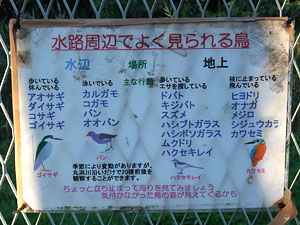 水路周辺でよく見られる鳥
水辺 場所 地上
歩いている 泳いでいる 主な行動 歩いている 枝に止まっている
休んでいる エサを探している 飛んでいる
アオサギ カルガモ ドバト ヒヨドリ
ダイサギ コガモ キジバト オナガ
コサギ バン スズメ メジロ
ゴイサギ オオバン ハシブトガラス シジュウカラ
ハシボソガラス カワセミ
ムクドリ
ハクセキレイ
バン
季節により変動がありますが、
丸浜川沿いだけで20種前後を
観察することができます。
ゴイサギ ハクセキレイ カワセミ
ちょっと立ち止まって周りを見てみましょう
気付かなかった鳥の姿が見えてくるかも